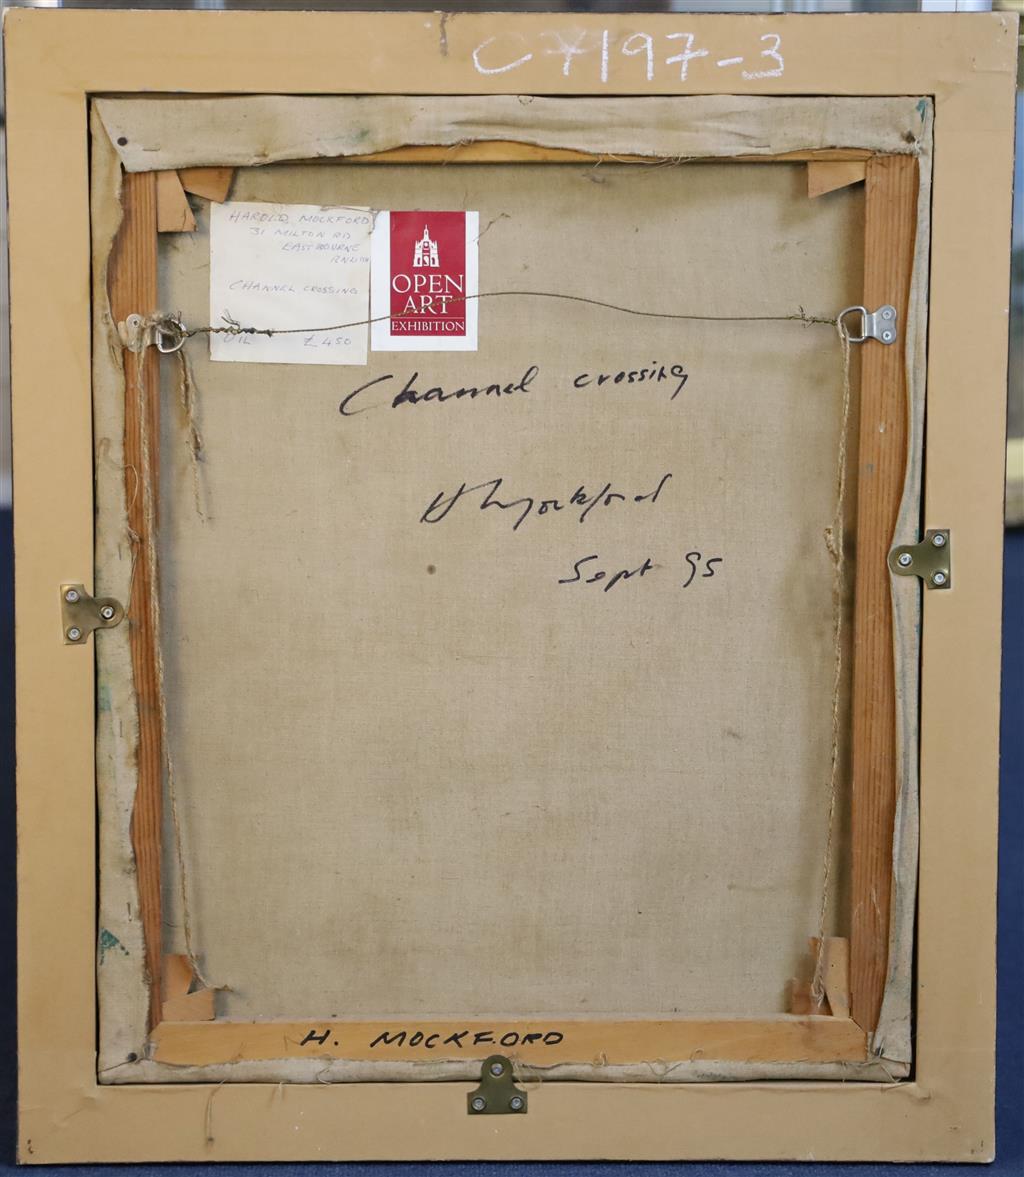 C7197-3
HAROLD MOCKFORD
31 MILTON RD
EASTBOURNE
CHANNEL CROSSING
OIL £450
OPEN
ART
EXHIBITION
Channel crossing
H Mockford
Sept 95
H. MOCKFORD